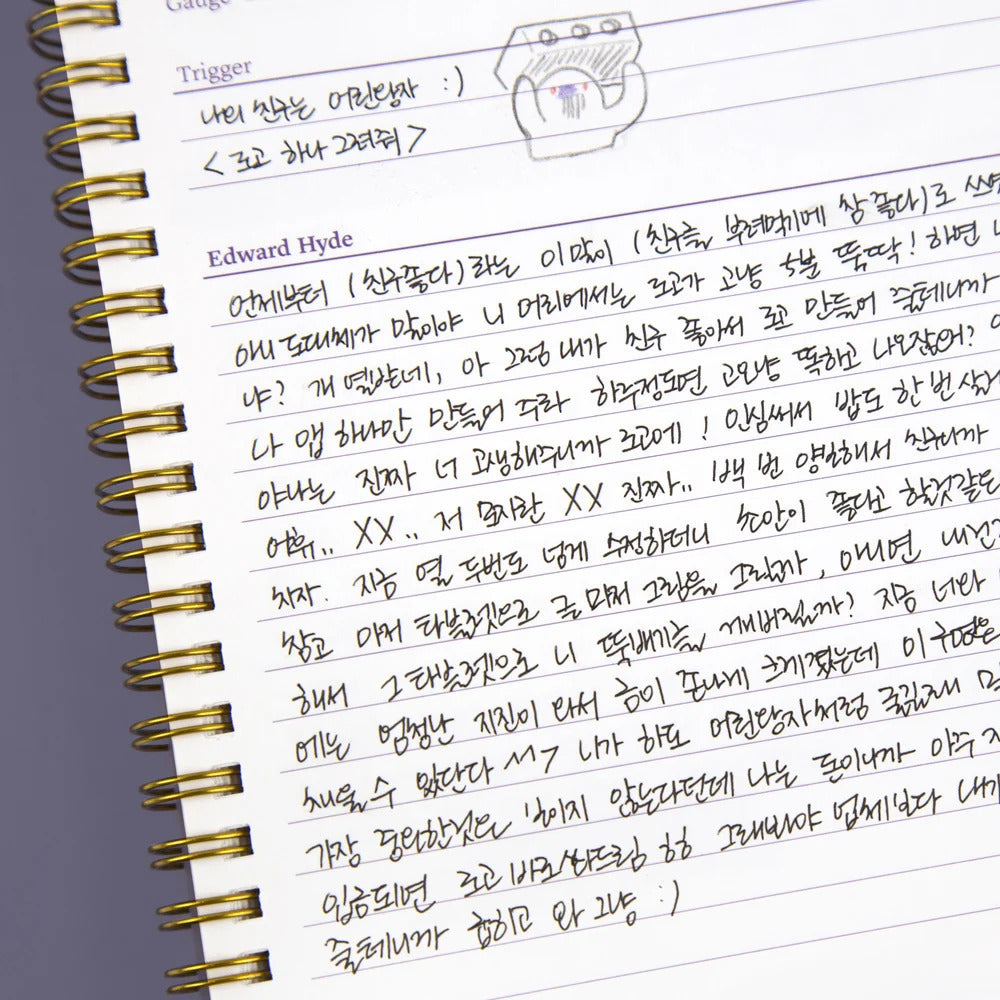 Gauge
Trigger
나의 친구는 어린왕자 :)
< 로고 하나 그려줘 >
Edward Hyde
언제부터 (친구좋다)라는 이말이 (친구를 부려먹기에 참 좋다)로 쓰면
아니 도대체가 말이야 니 머리에서는 로고가 그냥 5분 뚝딱! 하면 나
냐? 개 열받네, 아 그럼 내가 친구 좋아서 로고 만들어 줄테니까
나 앱 하나만 만들어 주라 하루정도면 그냥 뚝하고 나오잖어?
야나는 진짜 너 고생해주니까 로고에! 인심써서 밥도 한 번 살게
어휴.. XX .. 저 무지한 XX 진짜.. 백 번 양보해서 친구니까
치자. 지금 열 두번도 넘게 수정하더니 초안이 좋다고 할것같은
참고 마저 타블렛으로 글 마저 그림을 그릴까, 아니면 내
해서 그 타블렛으로 니 뚝배기를 깨버릴까? 지금 너와
에는 엄청난 지진이 와서 금이 존나게 크게갔는데 이
채울 수 있단다 ^^7 니가 하도 어린왕자처럼
가장 중요한것은 보이지 않는다던데 나는 돈이니까 아주
입금되면 로고 바로싸드림 ㅎㅎ 그래봐야 업체보다 내가
줄테니까 합치고 와 그냥 :)